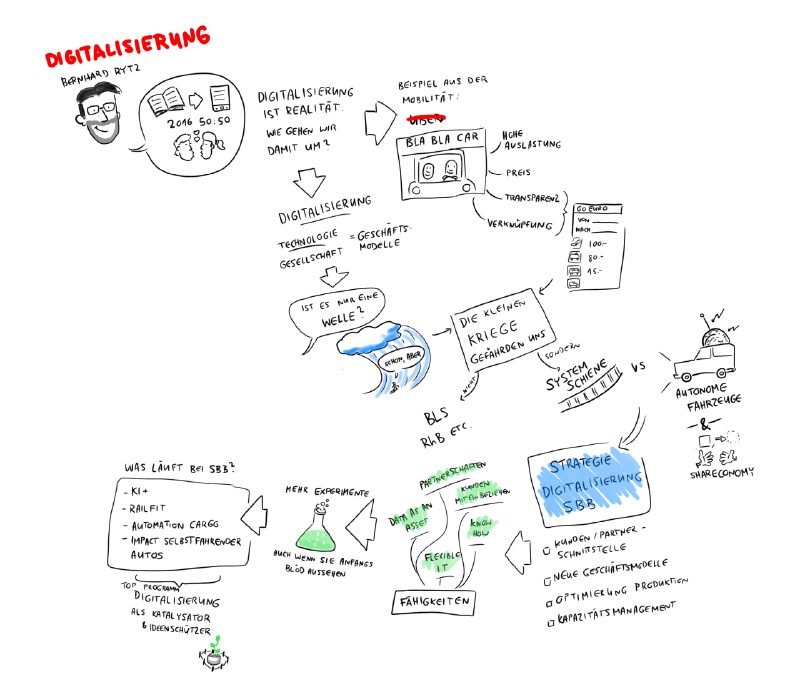 DIGITALISIERUNG
BERNHARD RYTZ
2016 50:50
DIGITALISIERUNG
IST REALITÄT.
WIE GEHEN WIR
DAMIT UM?
BEISPIEL AUS DER
MOBILITÄT:
UBER
BLA BLA CAR
HOHE
AUSLASTUNG
PREIS
TRANSPARENZ
VERKNÜPFUNG
GO EURO
VON
NACH
100.-
80.-
15.-
DIGITALISIERUNG
TECHNOLOGIE
GESELLSCHAFT
= GESCHÄFTS-
MODELLE
IST ES NUR EINE
WELLE?
SCHON, ABER
DIE KLEINEN
KRIEGE
GEFÄHRDEN UNS
NICHT
SONDERN
BLS
RhB ETC.
SYSTEM
SCHIENE
VS
AUTONOME
FAHRZEUGE
-&-
SHARECONOMY
STRATEGIE
DIGITALISIERUNG
SBB
KUNDEN/PARTNER-
SCHNITTSTELLE
NEUE GESCHÄFTSMODELLE
OPTIMIERUNG PRODUKTION
KAPAZITÄTSMANAGEMENT
PARTNERSCHAFTEN
KUNDEN
MITEINBEZIEHEN
DATA AS AN
ASSET
KNOW
HOW
FLEXIBLE
IT
FÄHIGKEITEN
MEHR EXPERIMENTE
AUCH WENN SIE ANFANGS
BLÖD AUSSEHEN
WAS LÄUFT BEI SBB?
- KI+
- RAILFIT
- AUTOMATION CARGO
- IMPACT SELBSTFAHRENDER
AUTOS
TOP PROGRAMM
DIGITALISIERUNG
ALS KATALYSATOR
& IDEENSCHÜTZER